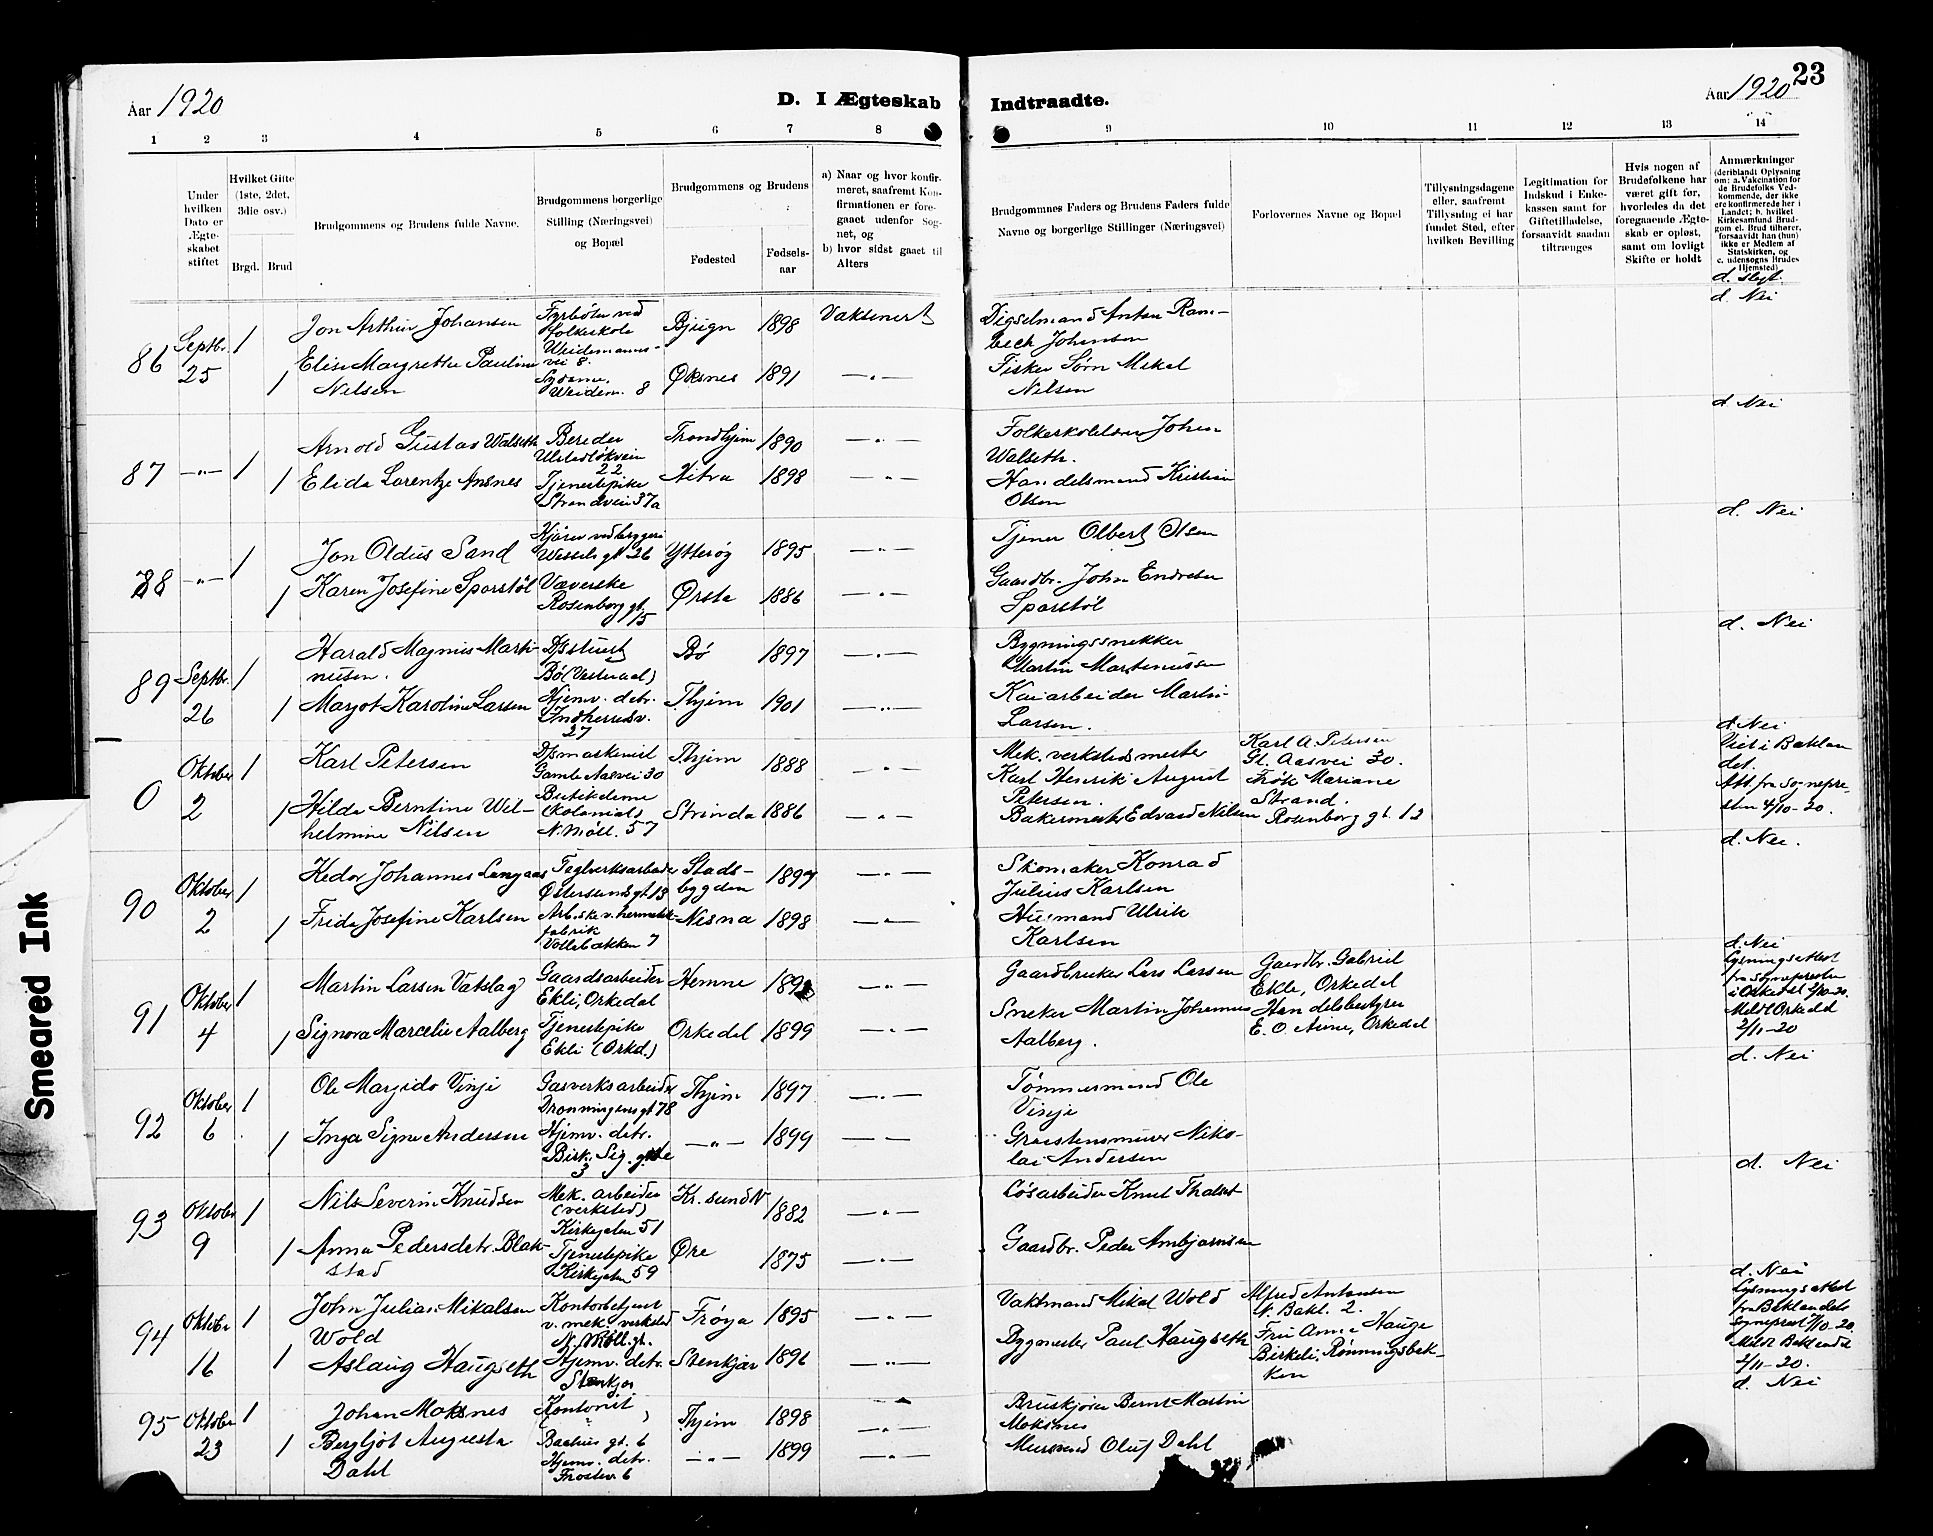 23
Aar 1920
D. I Ægteskab Indtraadte.
Aar 1920
1 2 3 4 5 6 7 8 9 10 11 12 13 14
Under hvilken Dato er Ægteskabet stiftet
Hvilket Gifte (1ste, 2det, 3die osv.)
Brgd. Brud
Brudgommens og Brudens fulde Navne.
Brudgommens borgerlige Stilling (Næringsvei) og Bopæl
Brudgommens og Brudens
Fødested
Fødsels-aar
a) Naar og hvor konfirmeret, saafremt Konfirmationen er foregaaet udenfor Sognet, og
b) hvor sidst gaaet til Alters
Brudgommnes Faders og Brudens Faders fulde Navne og borgerlige Stillinger (Næringsvei)
Forlovernes Navne og Bopæl
Tillysningsdagene eller, saafremt Tillysning ei har fundet Sted, efter hvilken Bevilling
Legitimation for Indskud i Enkekassen samt for Giftetilladelse, forsaavidt saadan tiltrænges
Hvis nogen af Brudefolkene har været gift før, hvorledes da det foregaaende Ægteskab er opløst, samt om lovligt Skifte er holdt
Anmærkninger (deriblandt Oplysning om: a. Vakcination for de Brudefolks Vedkommende, der ikke ere konfirmerede her i Landet; b. hvilket Kirkesamfund Brudgom el. Brud tilhører, forsaavidt han (hun) ikke er Medlem af Statskirken, og c. udensogns Brudes Hjemsted)
d. Slegt.
86 Septbr. 25 1 Jon Arthur Johansen
Fyrbøter ved Folkeskole
Weidemannsvei 8.
Bjugn 1898
Anton Rambech Johansen
d. Nei
1 Elise Margrethe Pauline Nilsen
Syerske.
Weidem. 8
Øksnes 1891 —"—
Fisker Sørn Mikal Nilsen
87 —"— 1 Arnold Gustav Walseth
Bereder
22
Trondhjem 1890 —"—
Johan Walseth.
d. Nei
1 Elida Lorentze Ansnes
Tjenestepike
Strandvein 37a
Hitra 1898 —"—
Handelsmand Kristian Olsen
88 —"— 1 Jon Oldus Sand
Kjører ved bryggeri
Wessels gt 26
Ytterøy 1895 —"—
Tjener Olbert Olsen
d. Nei
1 Karen Josefine Sporstøl
Væverske
Rosenborg gt. 15
Ørsta 1886 —"—
Gaardbr. John Endresen Sporstøl
89 Septbr. 26 1 Harald Magnus Martinusen.
Bø (Vesteraal)
Bø 1897 —"—
Bygningssnekker Martin Martinussen
d. Nei
1 Margot Karoline Larsen
Hjemv. datr.
Indherredsv. 27
Thjem 1901 —"—
Kaiarbeider Martin Larsen.
0 Oktober 2 1 Karl Petersen
Dsmaskinist
Gamle Aasvei 30
Thjem 1888 —"—
Mek. verkstedsmester Karl Henrik August Petersen.
Karl A. Petersen
Gl. Aasvei 30.
d. Nei
Viet i Baklandet.
Att. fra Sognepresten 4/10-20.
1 Hilda Berntine Wilhelmine Nilsen
Butikdame (Kolonial)
N. Møll. 57
Strinda 1886 —"—
Bakermester Edvard Nilsen
Frøk Mariane Strand.
Rosenborg gt. 12
90 Oktober 2 1 Kedor Johannes Langaas
Teglverksarbeider
Østersunds gt. 13
Stadsbygden 1897 —"—
Skomaker Konrad Julius Karlsen
d. Nei.
1 Frida Josefine Karlsen
Arb.ske v. hermetikfabrik
Vollabakken 7
Nesna 1898 —"—
Husmand Ulrik Karlsen
91 Oktober 4 1 Martin Larsen Vatslag
Gaardsarbeider
Ekli, Orkedal
Hemne —"—
Gaardbruker Lars Larsen
Gaardbr. Gabriel Ekle, Orkedal
d. Nei
Lysningsattest fra Sognepresten i Orkedal 2/10-20.
Meldt Orkedal 2/11-20
1 Signora Marcelie Aalberg
Tjenestepike
Ekli (Orkd.)
Orkedal 1899 —"—
Sneker Martin Johannes Aalberg.
Handelsbestyrer E. O. Aune, Orkedal
92 Oktober 6 1 Ole Margido Vinje
Gasverksarbeider
Dronningens gt 78
Thjem 1897 —"—
Tømmermand Ole Vinje
d. Nei
1 Inga Signe Andersen
Hjemv. datr.
Birk. Sig. gate 3
—"— 1899 —"—
Graastensmurer Nikolai Andersen
93 Oktober 9 1 Nils Severin Knudsen
Mek. arbeider (verksted)
Kirkegaten 51
Kr. sund N 1882 —"—
Løsarbeider Knut Thalset
d. Nei
1 Anna Pedersdatr. Blakstad
Tjenestepike
Kirkegaten 59
Øre 1875 —"—
Gaardbr. Peder Arnbjørnsen
94 Oktober 16 1 John Julian Mikalsen Wold
Kontorbetjent v. mek. verksted
N. Møll. gt.
Frøya 1895 —"—
Vaktmand Mikal Wold
Alfred Antonsen
N. Bakl. 2.
d. Nei
Lysningsattest fra Baklandets Sogneprest 7/10-20.
Meldt Baklandet 2/11-20.
1 Aslaug Haugseth
Hjemv. datr.
Stenkjær
Stenkjær 1896 —"—
Bygmester Paul Haugseth
Fru Anna Hauge
Birkeli, Rønningsbakken
95 Oktober 23 1 Johan Moksnes
Kontorist
Bakhus gt. 6
Thjem 1898
Bruskjører Bernt Martin Moksnes
d. Nei
1 Bergljot Augusta Dahl
Hjemv. datr.
Frostav. 6
—"— 1899 —"—
Mursvend Oluf Dahl
Smeared Ink